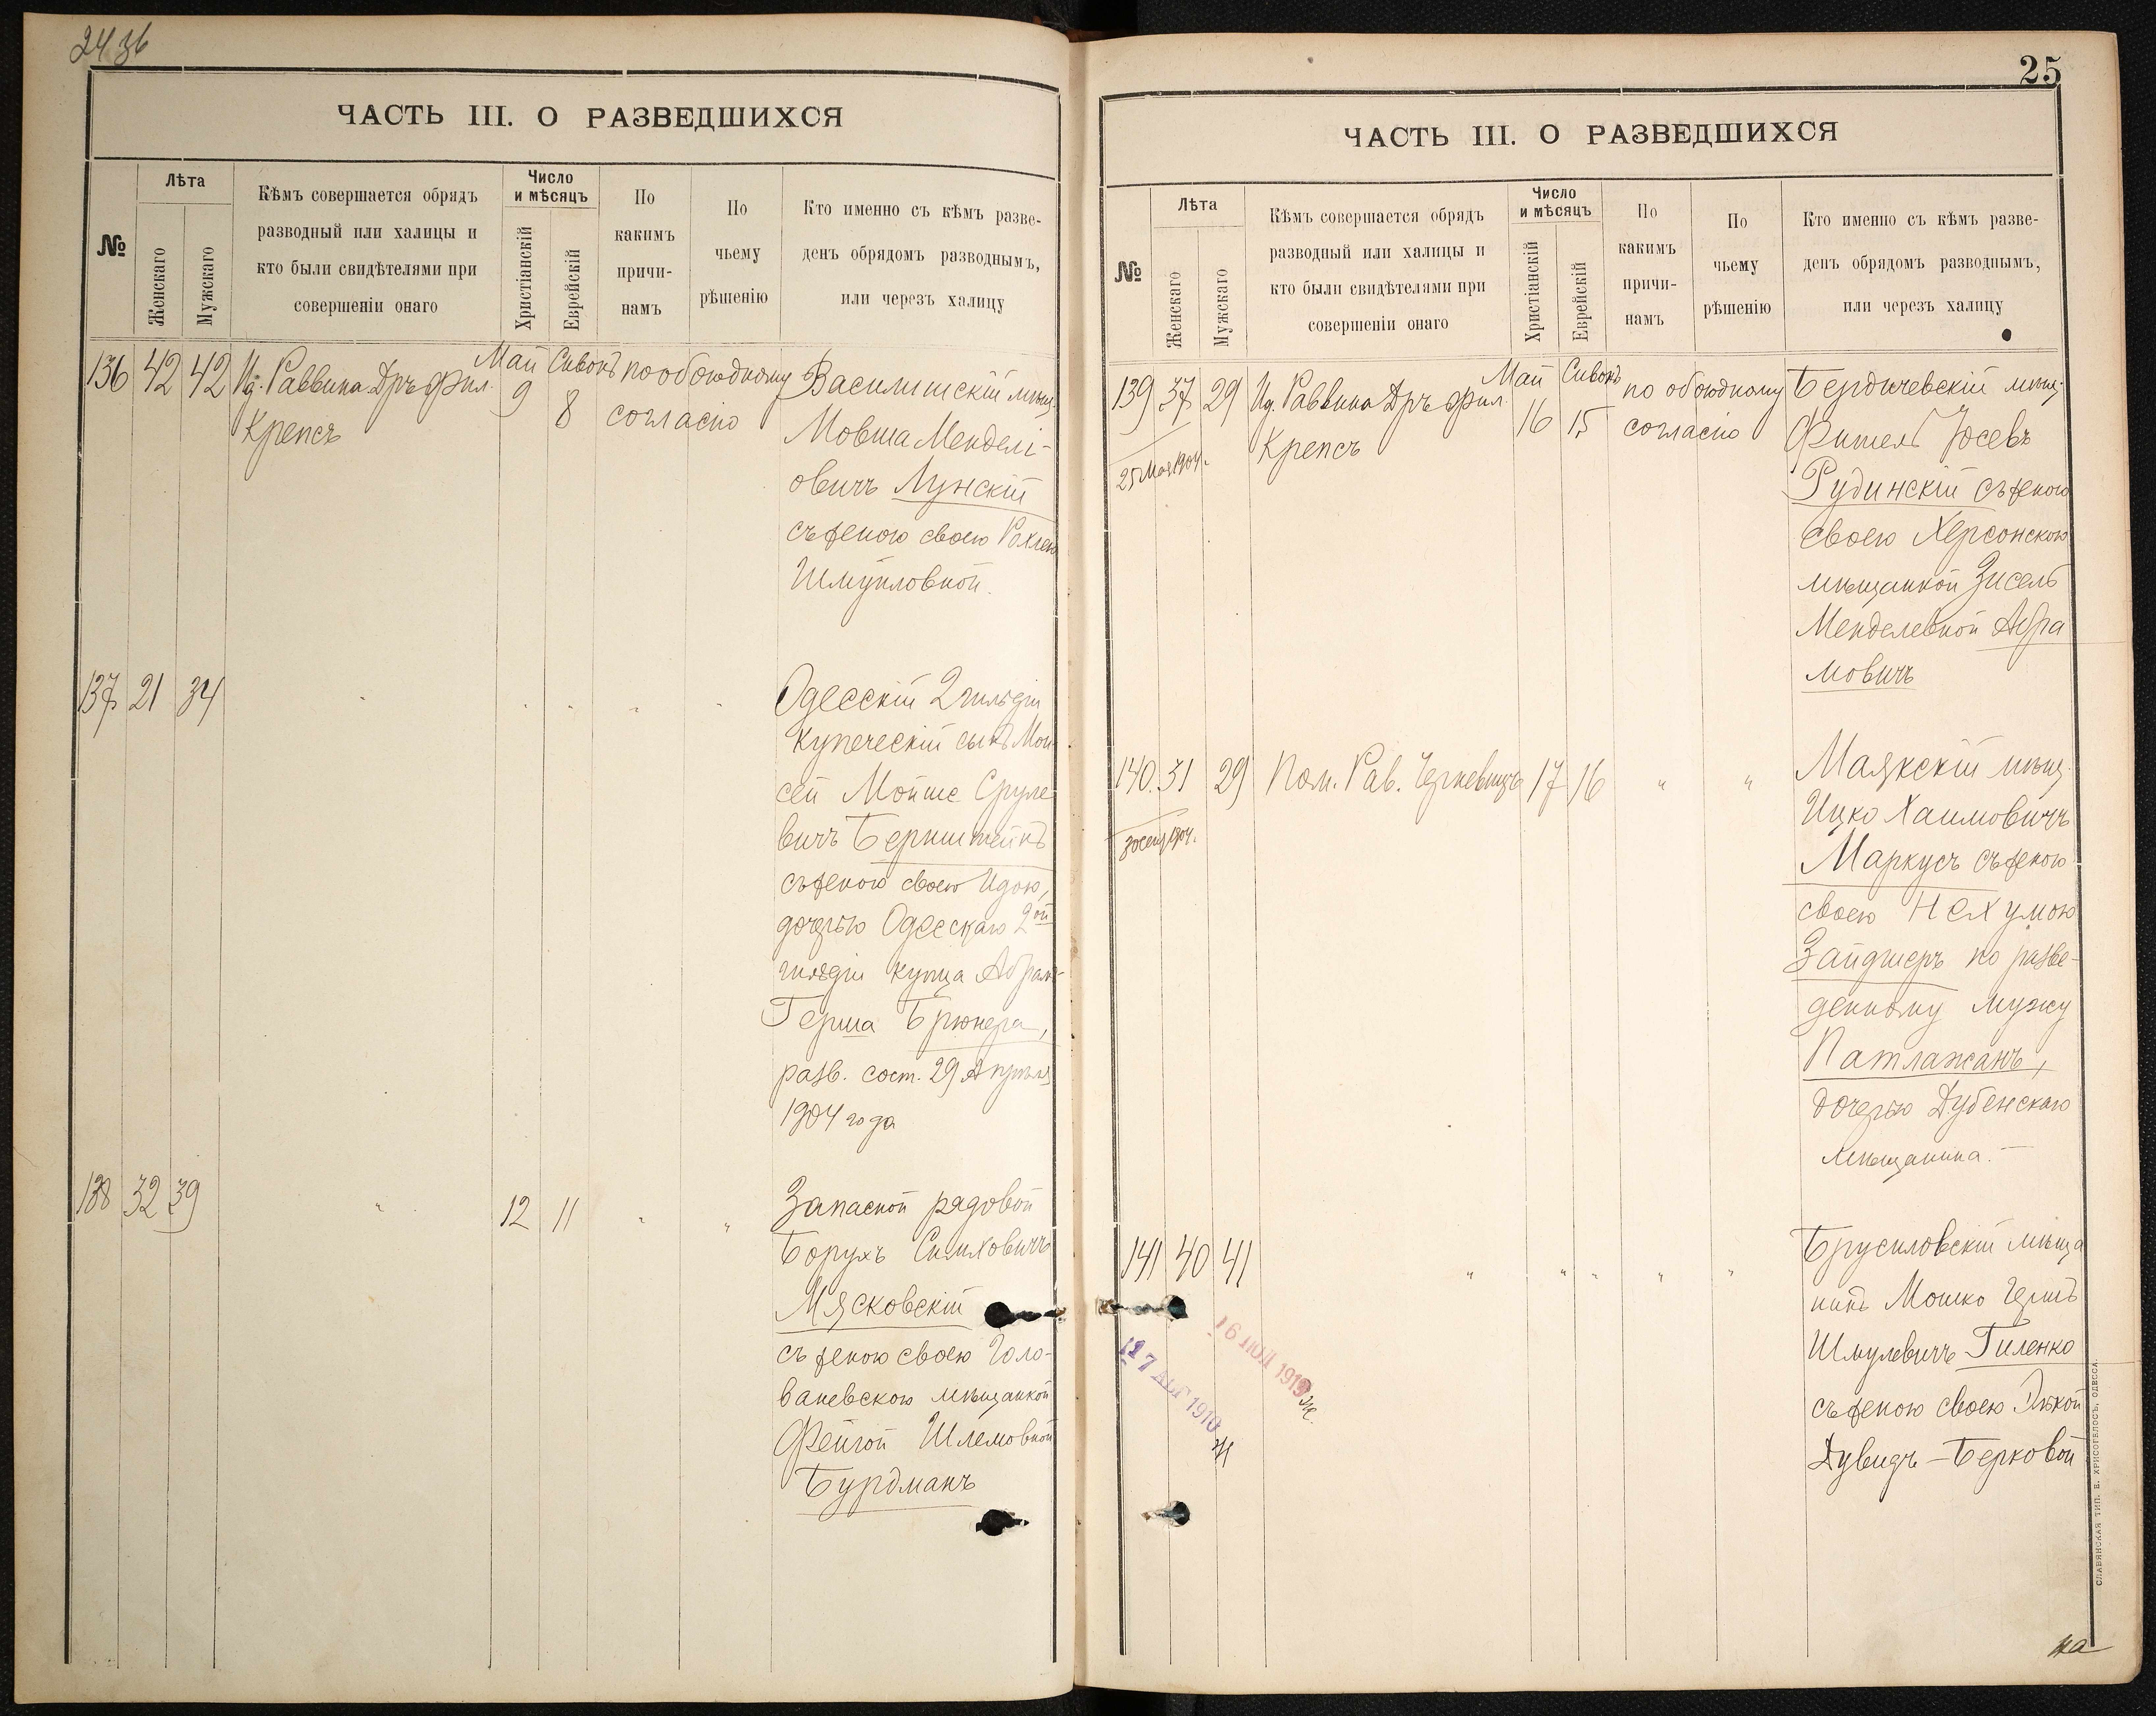 24 36
ЧАСТЬ III. О РАЗВЕДШИХСЯ
№
Лѣта
Женскаго
Мужскаго
Кѣмъ совершается обрядъ
разводный или халицы и
кто были свидѣтелями при
совершеніи онаго
Число
и мѣсяцъ
Христіанскій
Еврейскій
По
какимъ
причи-
намъ
По
чьему
рѣшенію
Кто именно съ кѣмъ разве-
денъ обрядомъ разводнымъ,
или черезъ халицу
136 42 42 Раввина Дръ Фил. Май 9 Сивонъ 8 по обоюдному
Крепсъ
согласію
Василишскій мѣщ.
Мовша Менделі-
овичъ Лунскій
съ женою своею Рахлею
Шмуиловной.
137 21 34
Одесскій 2 гильдіи
купеческій сынъ Мои-
сей Мойше Сруле
вичъ Бернштейнъ
съ женою своею Идою,
дочерью Одесскаго 2ой
гильдіи купца Абрамъ-
Герша Брюнера,
разв. сост. 29 Апрѣля
1904 года
138 32 39 " 12 11 " "
Запасной рядовой
Борухъ Симховичъ
Мясковскій
съ женою своею Голо-
ваневскою мѣщанкой
Фейгой Шлемовной
Бурдманъ
25
ЧАСТЬ III. О РАЗВЕДШИХСЯ
№
Лѣта
Женскаго
Мужскаго
Кѣмъ совершается обрядъ
разводный или халицы и
кто были свидѣтелями при
совершеніи онаго
Число
и мѣсяцъ
Христіанскій
Еврейскій
По
какимъ
причи-
намъ
По
чьему
рѣшенію
Кто именно съ кѣмъ разве-
денъ обрядомъ разводнымъ,
или черезъ халицу
139 37 29 Раввина Дръ Фил. Май 16 Сивонъ 15 по обоюдному
25 Мая 1904.
Крепсъ
согласію
Бердичевскій мѣщ.
Фишель Іосевъ
Рудинскій съ женою
своею Херсонскою
мѣщанкой Зисель
Менделевной Абра
мовичъ
140. 31 29 Пом. Рав. Черкевицъ 17 16 " "
30 сент 1904.
Маякскій мѣщ.
Ицко Хаимовичъ
Маркусъ съ женою
своею Нехумою
Зайдшеръ по разве-
денному мужу
Патлажанъ,
дочерью Дубенскаго
мѣщанина.—
141 40 41 " " " " "
Брусиловскій мѣща
нинъ Мошко Гершъ
Шмулевичъ Гиленко
съ женою своею
Дувидъ-Берковой
16 ІЮЛ 1913
17 АВГ 1910
СЛАВЯНСКАЯ ТИП. Е. ХРИСОГЕЛОСЪ, ОДЕССА.